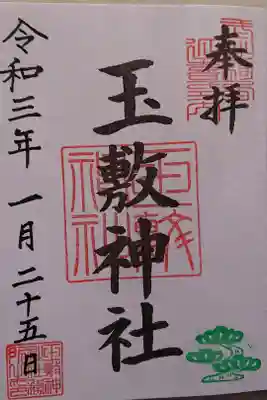 奉拝
玉敷神社
令和三年一月二十五日